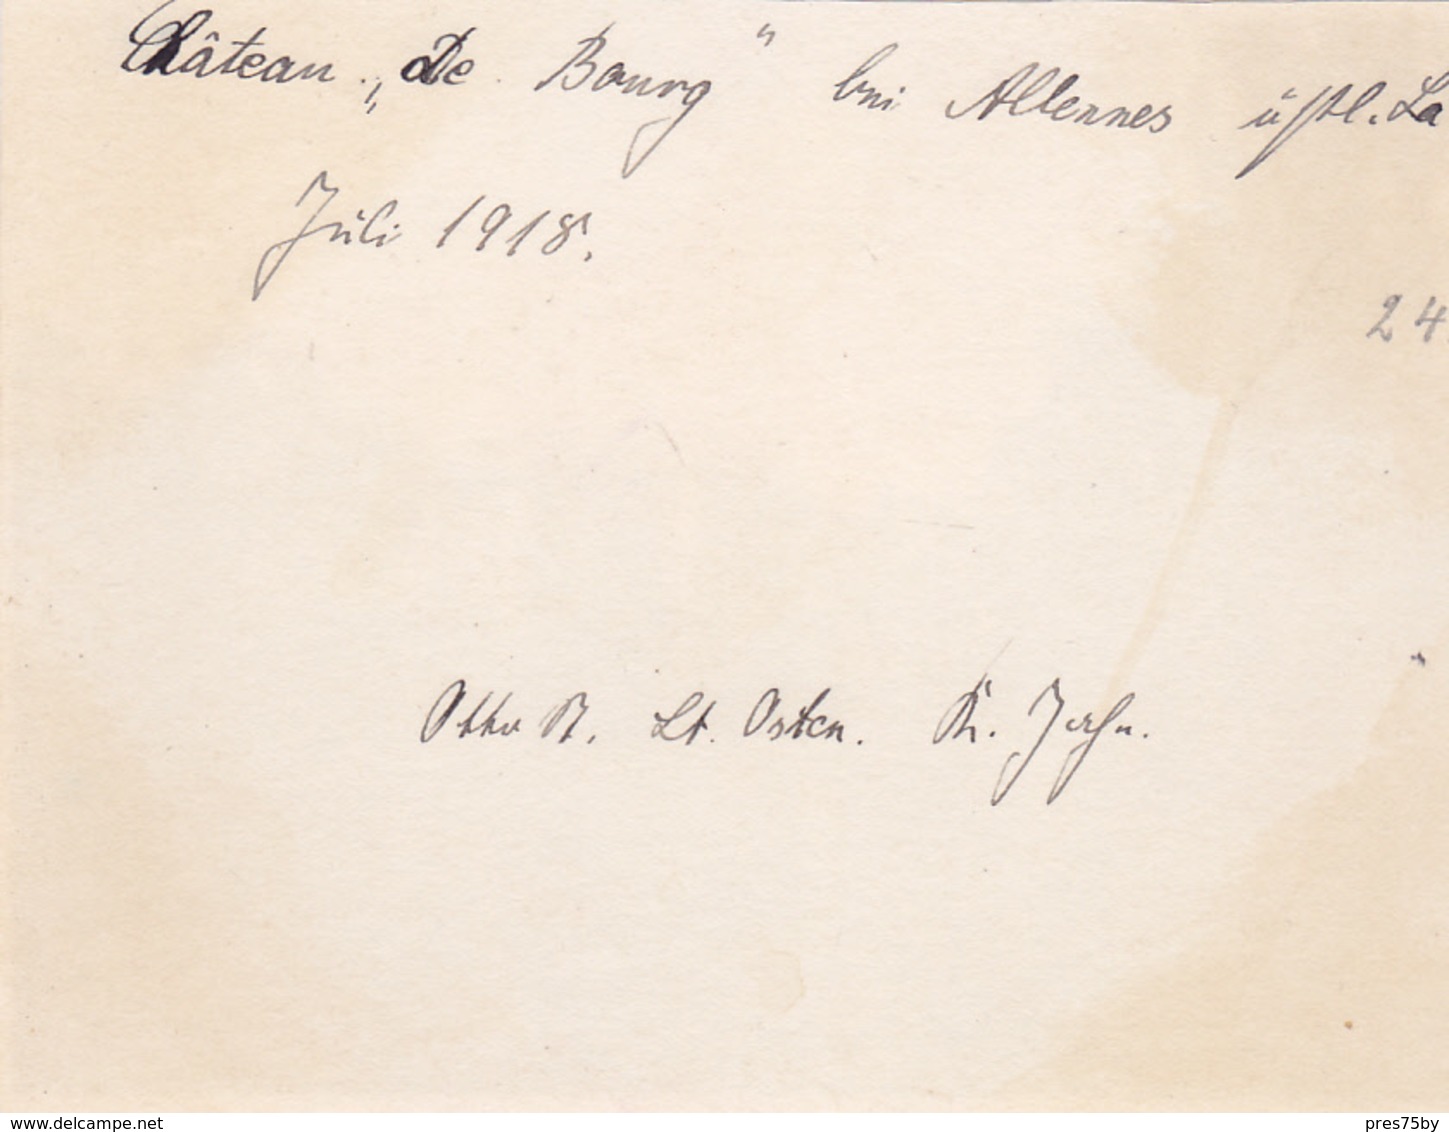 Château „De Bourg" bei Allennes östl. La
Juli 1918.
24.
Otto St. Lt. Osten. Kr. Jahn.
www.delcampe.net
pres75by